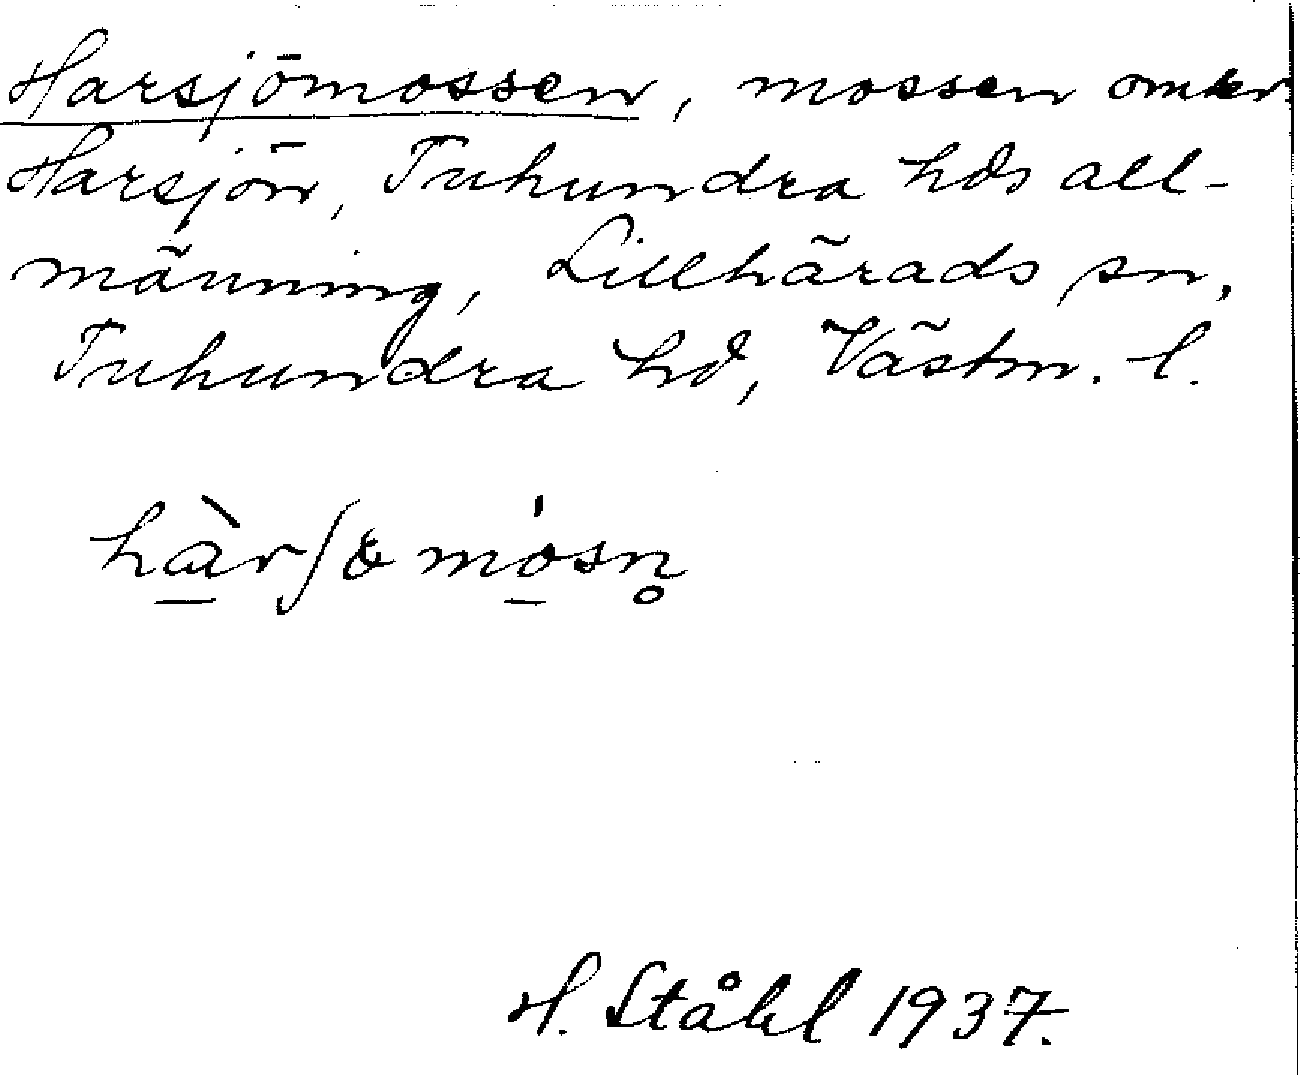 Harsjömossen, mossen omkr.
Harsjön, Tuhundra hds all-
männing, Lillhärads sn,
Tuhundra hd, Västm. l.
H. Ståhl 1937.